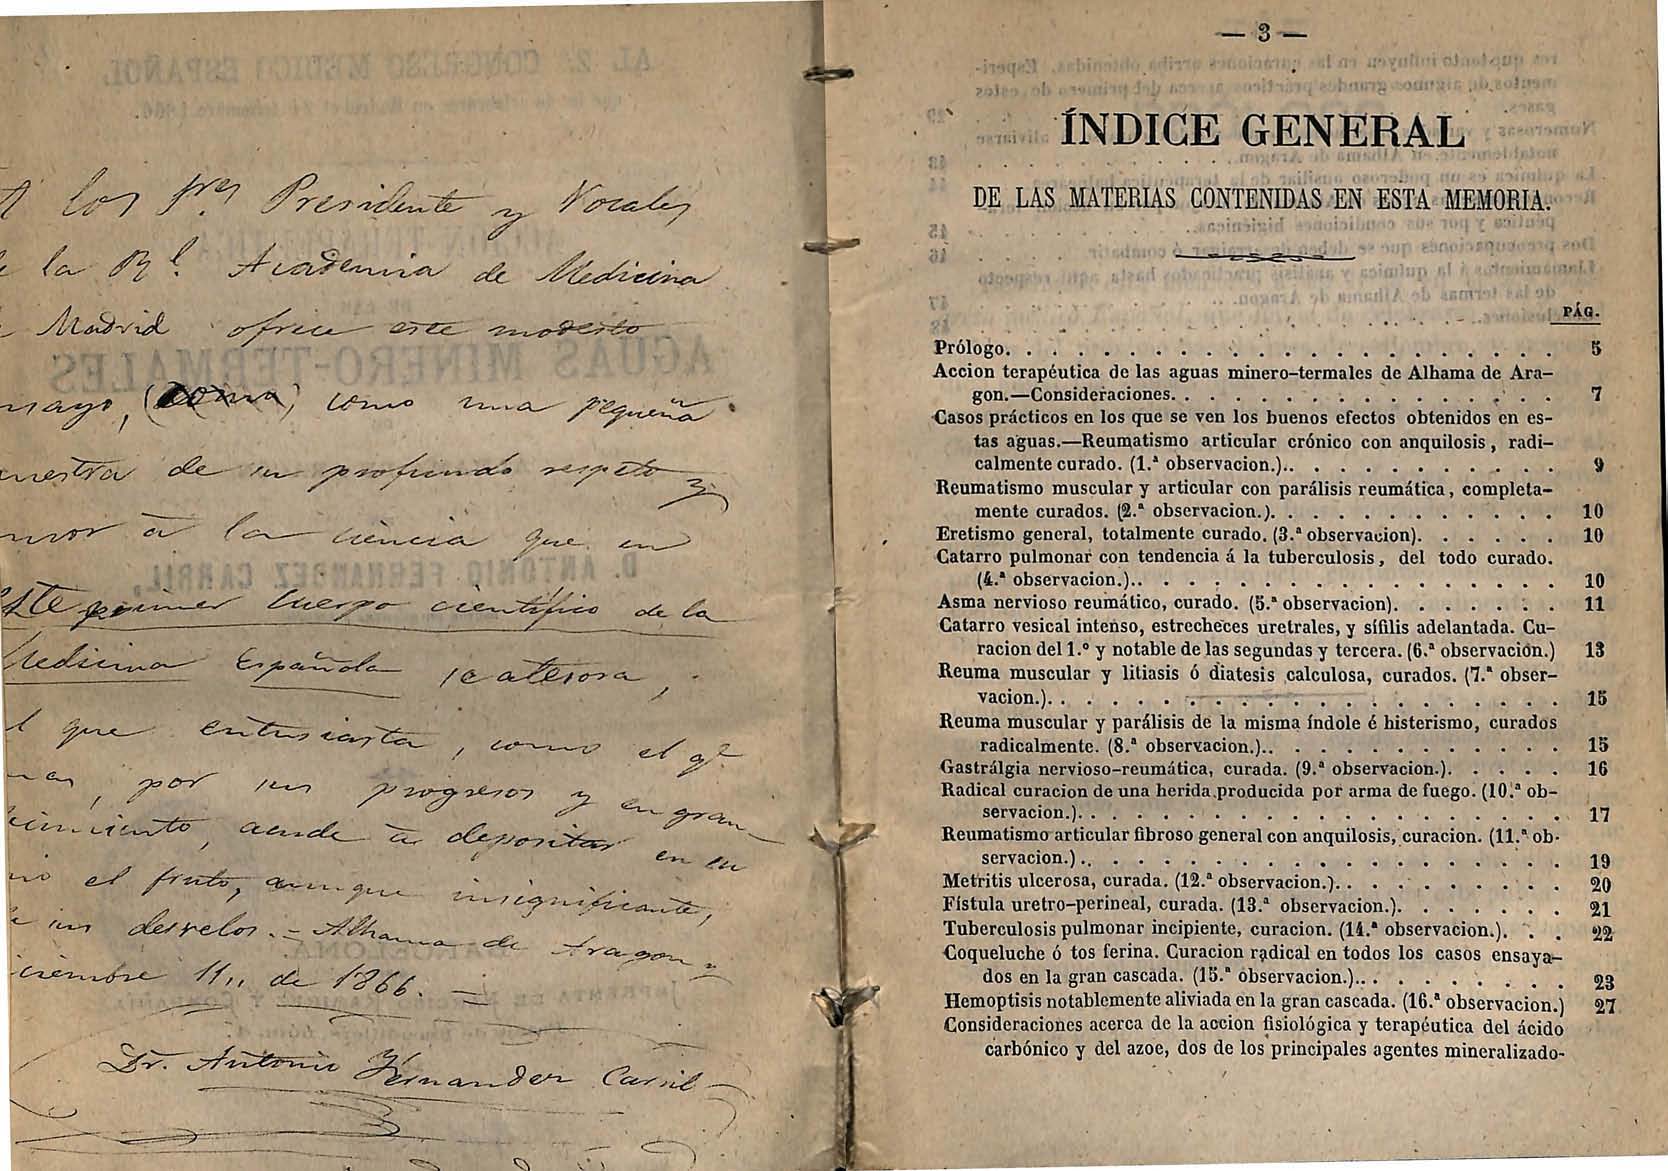 A los Sres Presidente y Vocales
la Rl. Academia de Medicina
Madrid ofrece este modesto
como una pequeña
de su profundo respeto y
á la ciencia que en
este primer Cuerpo científico de la
Medicina Española se atesora,
que entusiasta, como el qe
por sus progresos y
acude á depositar en su
el fruto, aunque insignificante,
sus desvelos.- Alhama de Aragon y
11,, de 1866.
Dr. Antonio Fernandez Carril
— 3 —
ÍNDICE GENERAL
DE LAS MATERIAS CONTENIDAS EN ESTA MEMORIA.
PÁG.
Prólogo. 5
Accion terapéutica de las aguas minero-termales de Alhama de Ara-
gon.—Consideraciones. 7
Casos prácticos en los que se ven los buenos efectos obtenidos en es-
tas aguas.—Reumatismo articular crónico con anquilosis, radi-
calmente curado. (1.ª observacion.).. 9
Reumatismo muscular y articular con parálisis reumática, completa-
mente curados. (2.ª observacion.). 10
Eretismo general, totalmente curado. (3.ª observacion). 10
Catarro pulmonar con tendencia á la tuberculosis, del todo curado.
(4.ª observacion.).. 10
Asma nervioso reumático, curado. (5.ª observacion). 11
Catarro vesical intenso, estrecheces uretrales, y sífilis adelantada. Cu-
racion del 1.º y notable de las segundas y tercera. (6.ª observación.) 13
Reuma muscular y litiasis ó diatesis calculosa, curados. (7.ª obser-
vacion.). 15
Reuma muscular y parálisis de la misma índole é histerismo, curados
radicalmente. (8.ª observacion.).. 15
Gastrálgia nervioso-reumática, curada. (9.ª observacion.). 16
Radical curacion de una herida producida por arma de fuego. (10.ª ob-
servacion.). 17
Reumatismo articular fibroso general con anquilosis, curacion. (11.ª ob-
servacion.). 19
Metritis ulcerosa, curada. (12.ª observacion.). 20
Fístula uretro-perineal, curada. (13.ª observacion.). 21
Tuberculosis pulmonar incipiente, curacion. (14.ª observacion.). 22
Coqueluche ó tos ferina. Curacion radical en todos los casos ensaya-
dos en la gran cascada. (15.ª observacion.).. 23
Hemoptisis notablemente aliviada en la gran cascada. (16.ª observacion.) 27
Consideraciones acerca de la accion fisiológica y terapéutica del ácido
carbónico y del azoe, dos de los principales agentes mineralizado-